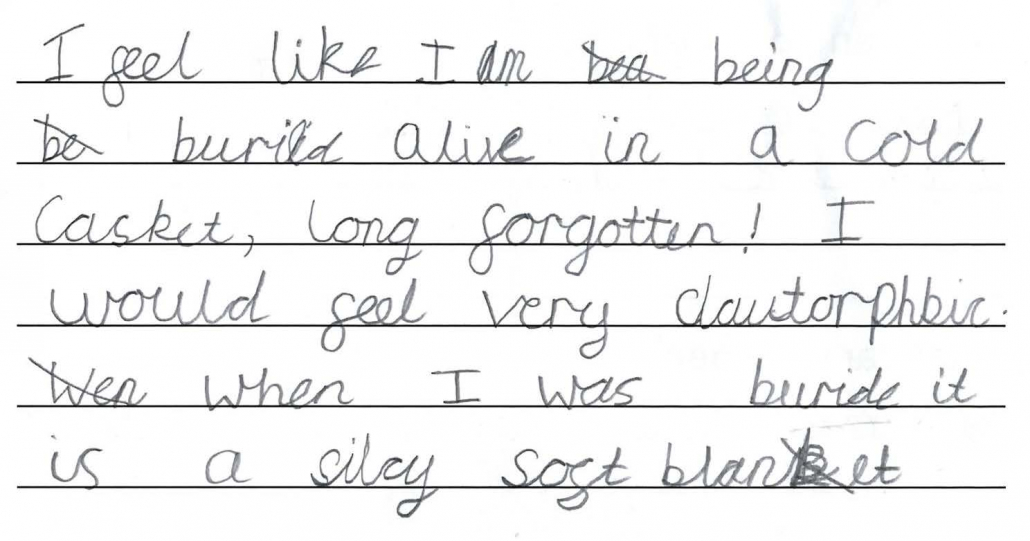 I feel like I am bea being
be buried alive in a cold
casket, long forgotten! I
would feel very clautorphbic.
Wen when I was buride it
is a silcy soft blanket